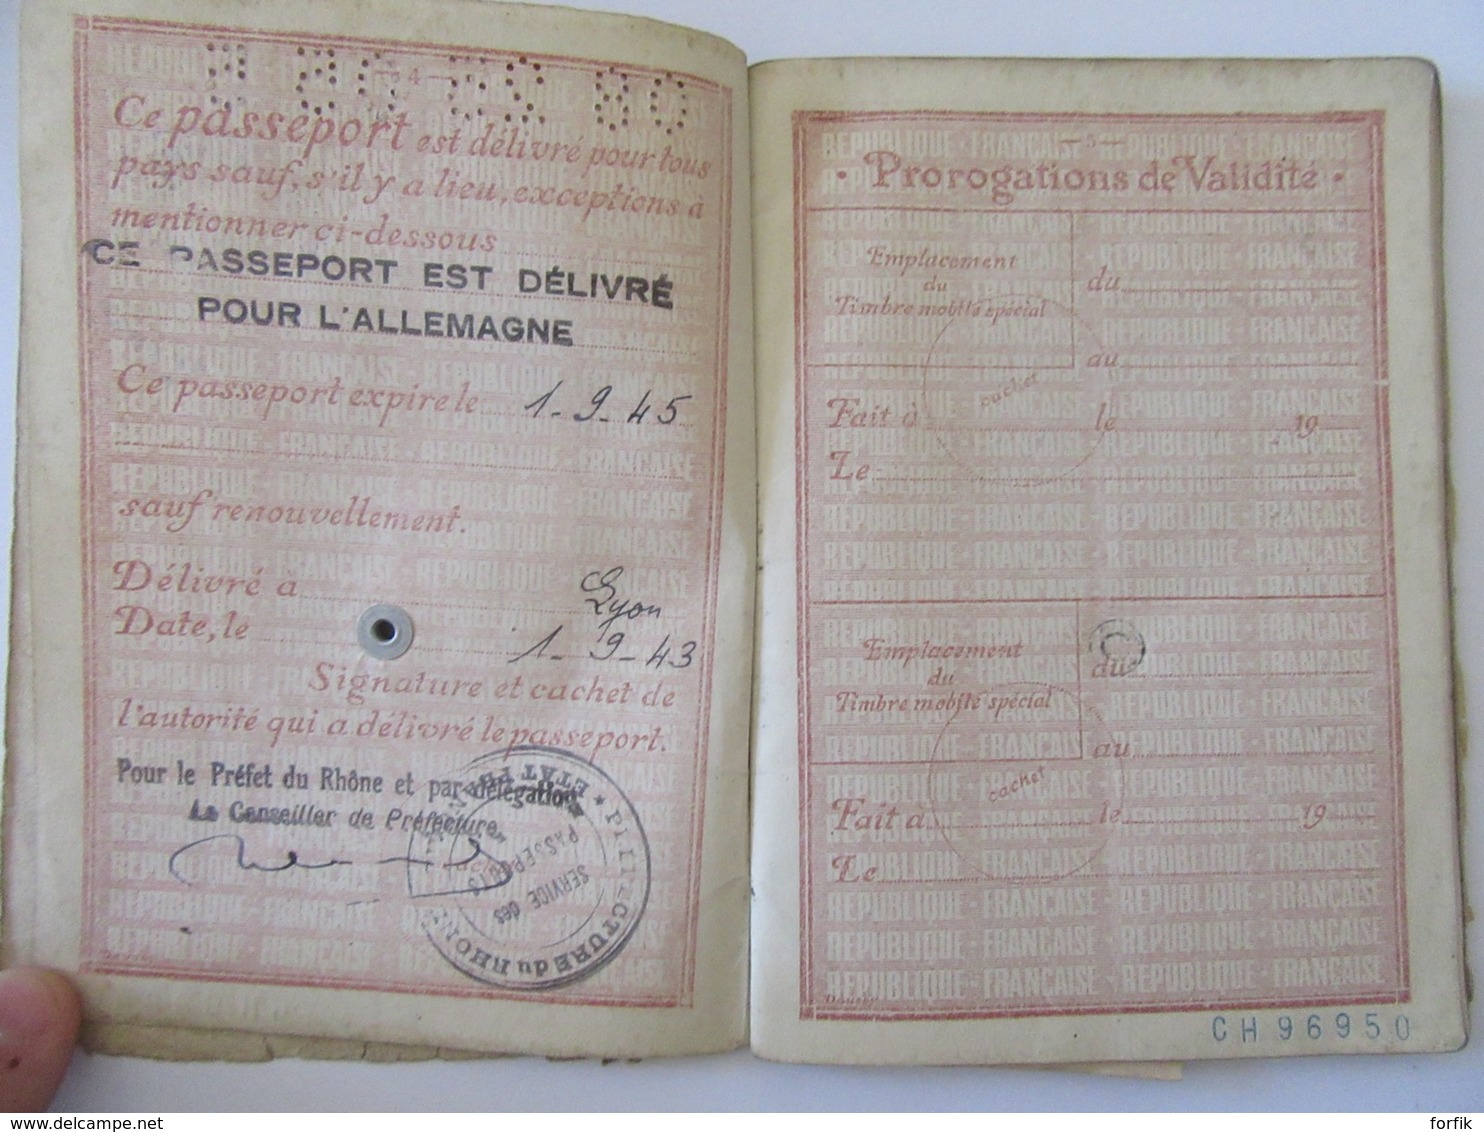 — 4 —
Ce passeport est délivré pour tous
pays sauf, s'il y a lieu, exceptions à
mentionner ci-dessous
CE PASSEPORT EST DÉLIVRÉ
POUR L'ALLEMAGNE
Ce passeport expire le 1-9-45
sauf renouvellement.
Délivré à Lyon
Date, le 1-9-43
Signature et cachet de
l'autorité qui a délivré le passeport.
Pour le Préfet du Rhône et par délégation
Le Conseiller de Préfecture
PRÉFECTURE du RHÔNE
SERVICE des
PASSEPORTS
— 5 —
• Prorogations de Validité •
Emplacement
du
Timbre mobile spécial
du
au
cachet
Fait à le 19
Le
Emplacement
du
Timbre mobile spécial
du
au
cachet
Fait à le 19
Le
CH96950
delcampe.net
forfik